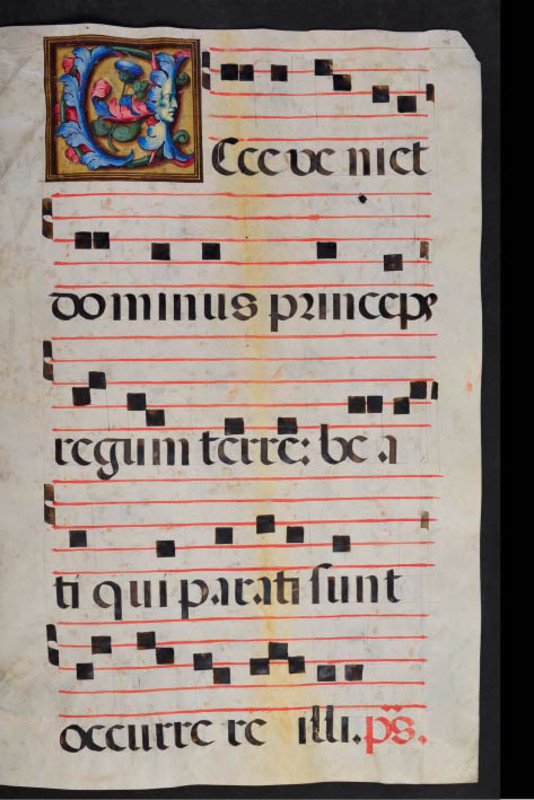 Ecce ve niet
dominus princeps
regum terre: be a
ti qui parati sunt
occurre re illi. ps.